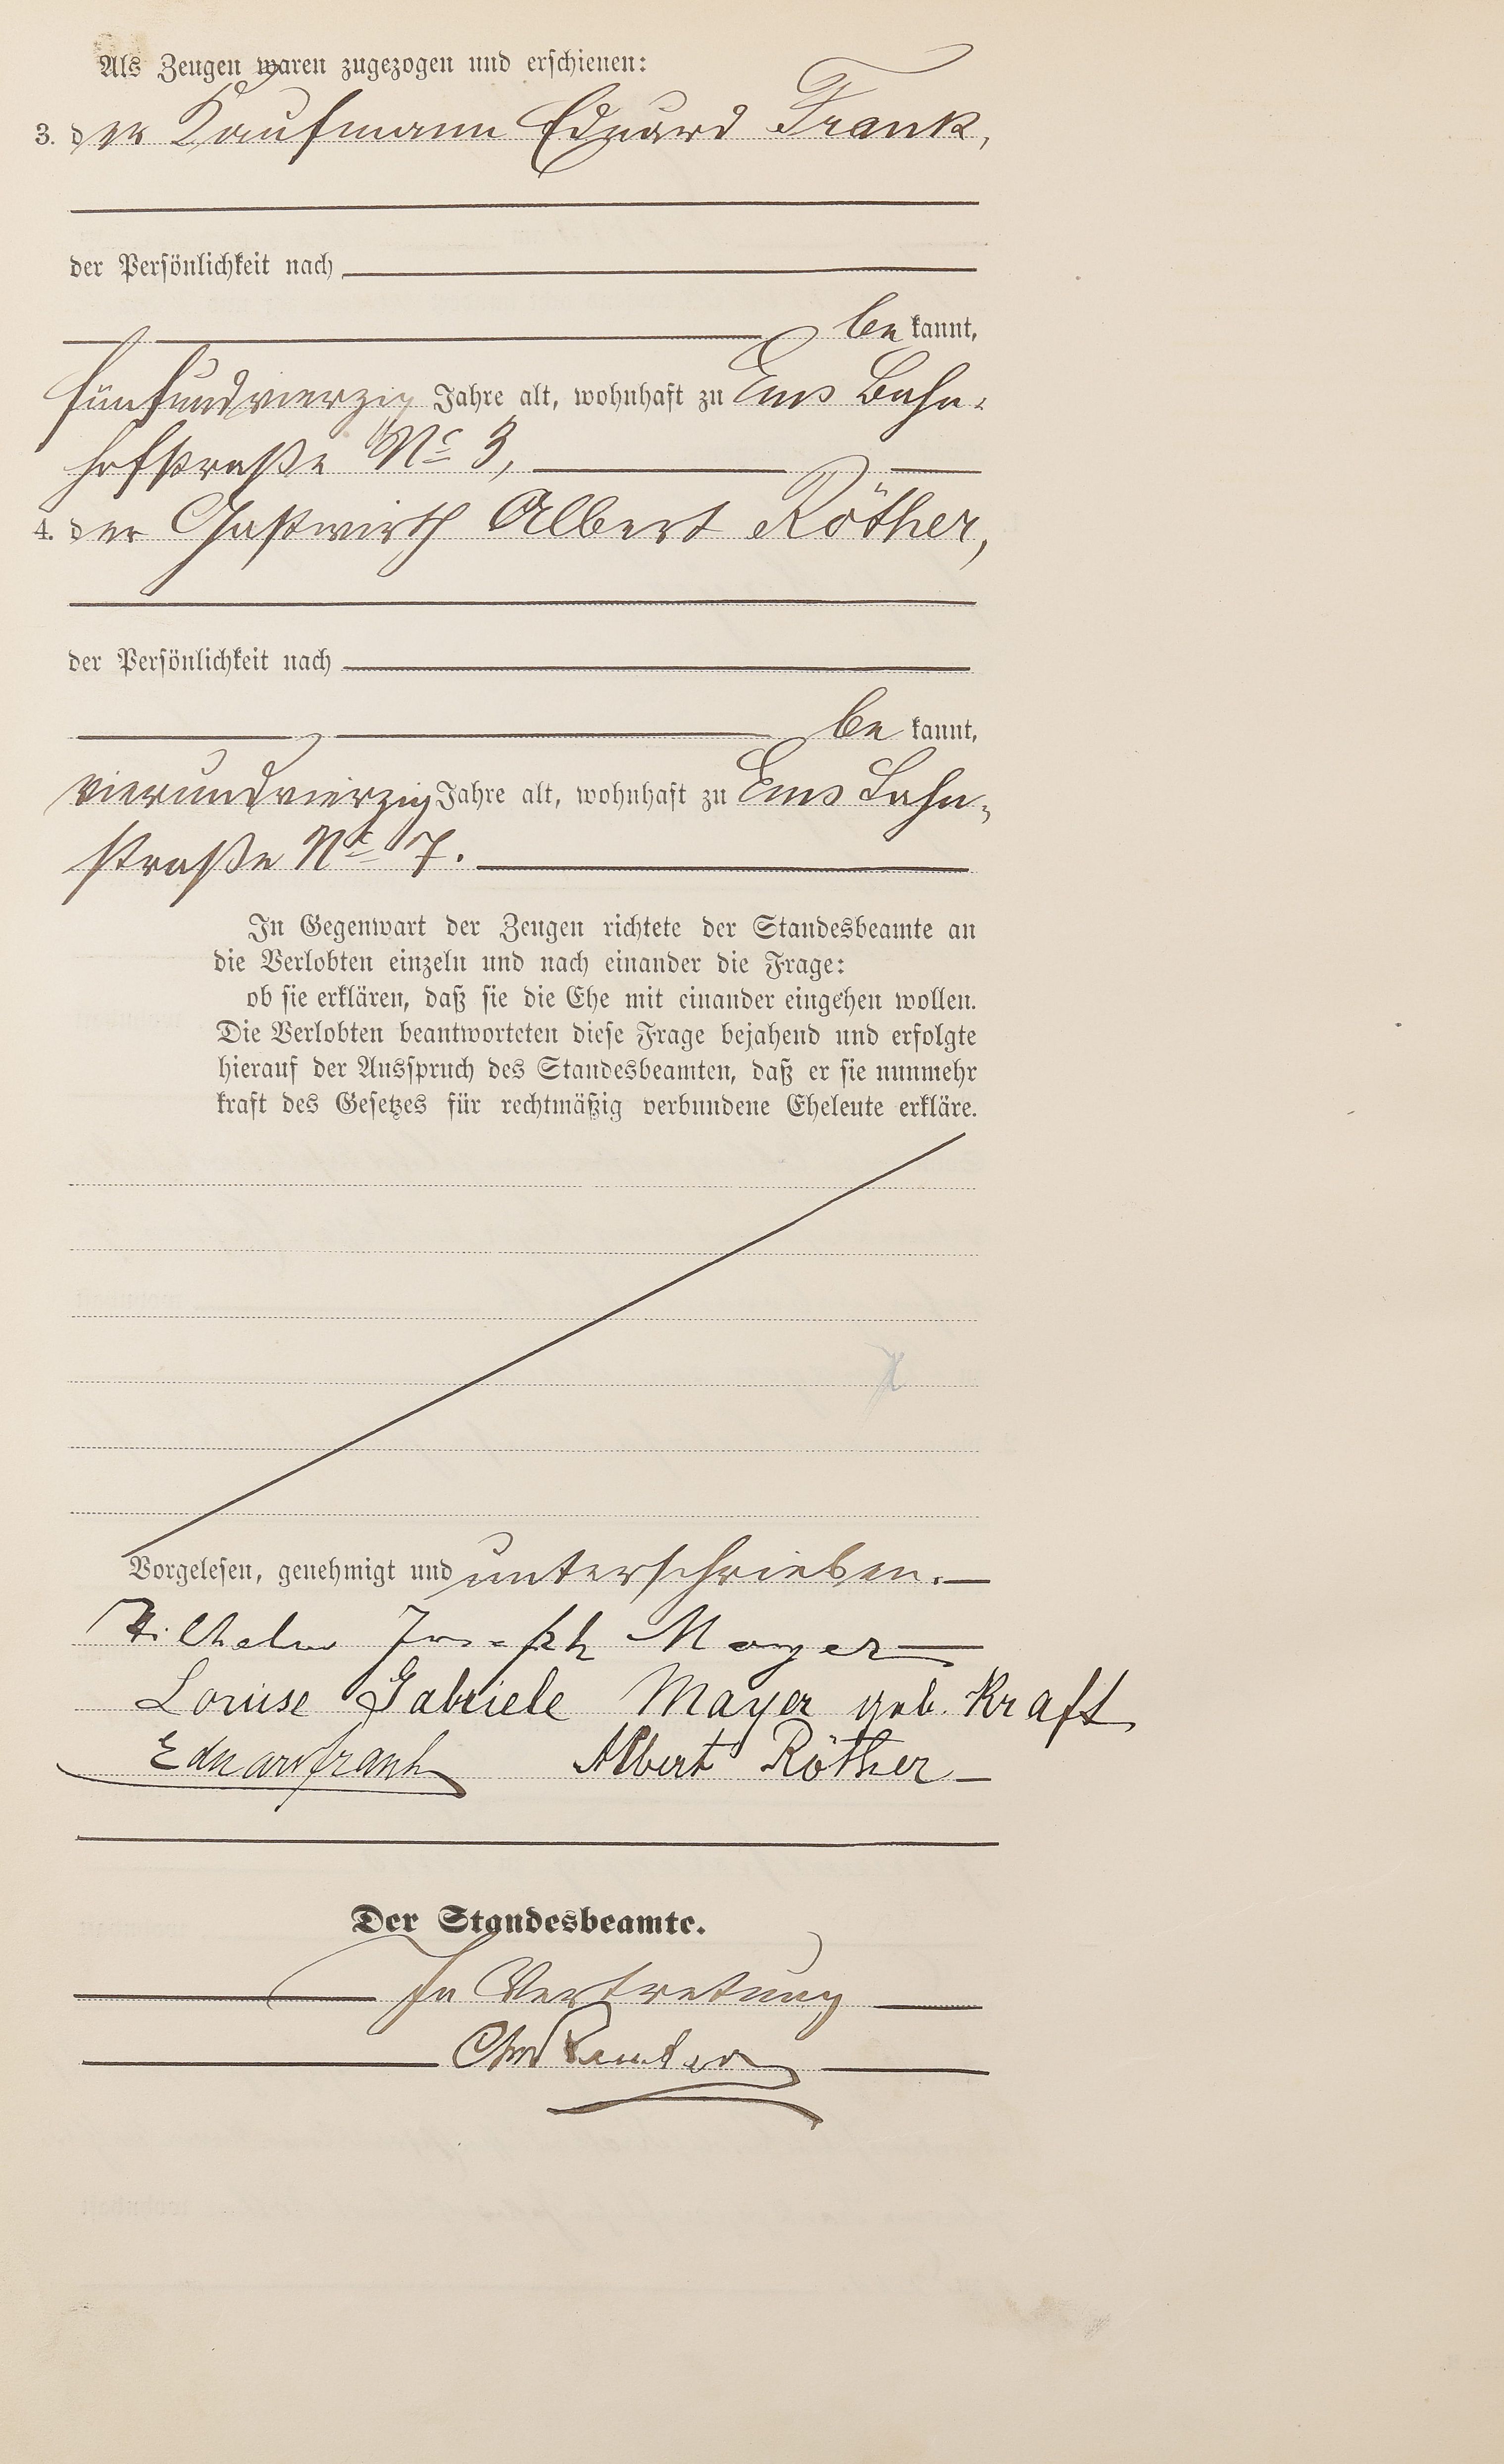 Als Zeugen waren zugezogen und erschienen:
3. der Kaufmann Eduard Frank,
der Persönlichkeit nach
be kannt,
fünfundvierzig Jahre alt, wohnhaft zu Ems Bahn-
hofstraße No 3,
4. der Gastwirth Albert Röther,
der Persönlichkeit nach
be kannt,
vierundvierzig Jahre alt, wohnhaft zu Ems Lahn-
straße No 7.
In Gegenwart der Zeugen richtete der Standesbeamte an
die Verlobten einzeln und nach einander die Frage:
ob sie erklären, daß sie die Ehe mit einander eingehen wollen.
Die Verlobten beantworteten diese Frage bejahend und erfolgte
hierauf der Ausspruch des Standesbeamten, daß er sie nunmehr
kraft des Gesetzes für rechtmäßig verbundene Eheleute erkläre.
Vorgelesen, genehmigt und unterschrieben.
Wilhelm Joseph Mayer
Louise Gabriele Mayer geb. Kraft
Eduard Frank Albert Röther
Der Standesbeamte.
In Vertretung